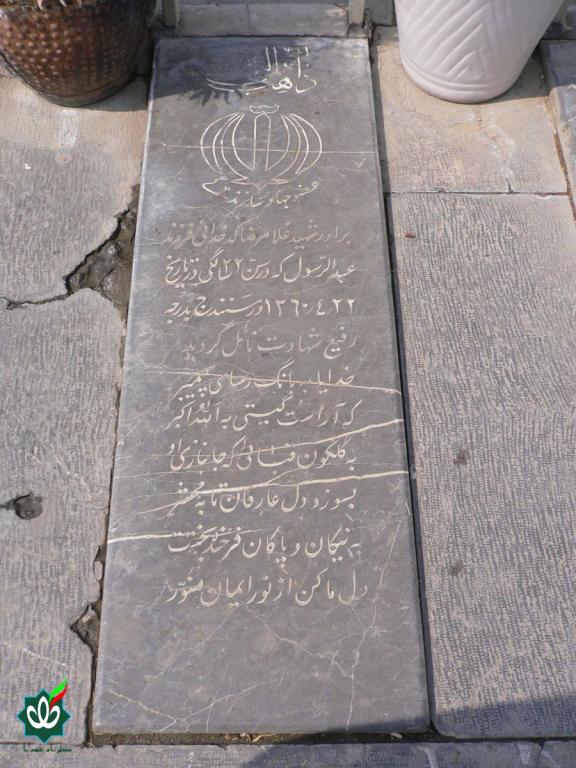 عضو جهاد سازندگی
برادر شهید غلامرضا خدائی فرزند
عبدالرسول که در سن ۲۲ سالگی در تاریخ
۱۳۶۰،۴،۲۲ در سنندج بدرجه
رفیع شهادت نائل گردید
خدایا ببانگ رسای پیمبر
که آراست گیتی به الله اکبر
به گلگون قبائی که جانبازی او
بسوزد دل عارفان تا به محشر
به نیکان و پاکان فرخنده بخت
دل ما کن از نور ایمان منور
گلزار شهدا